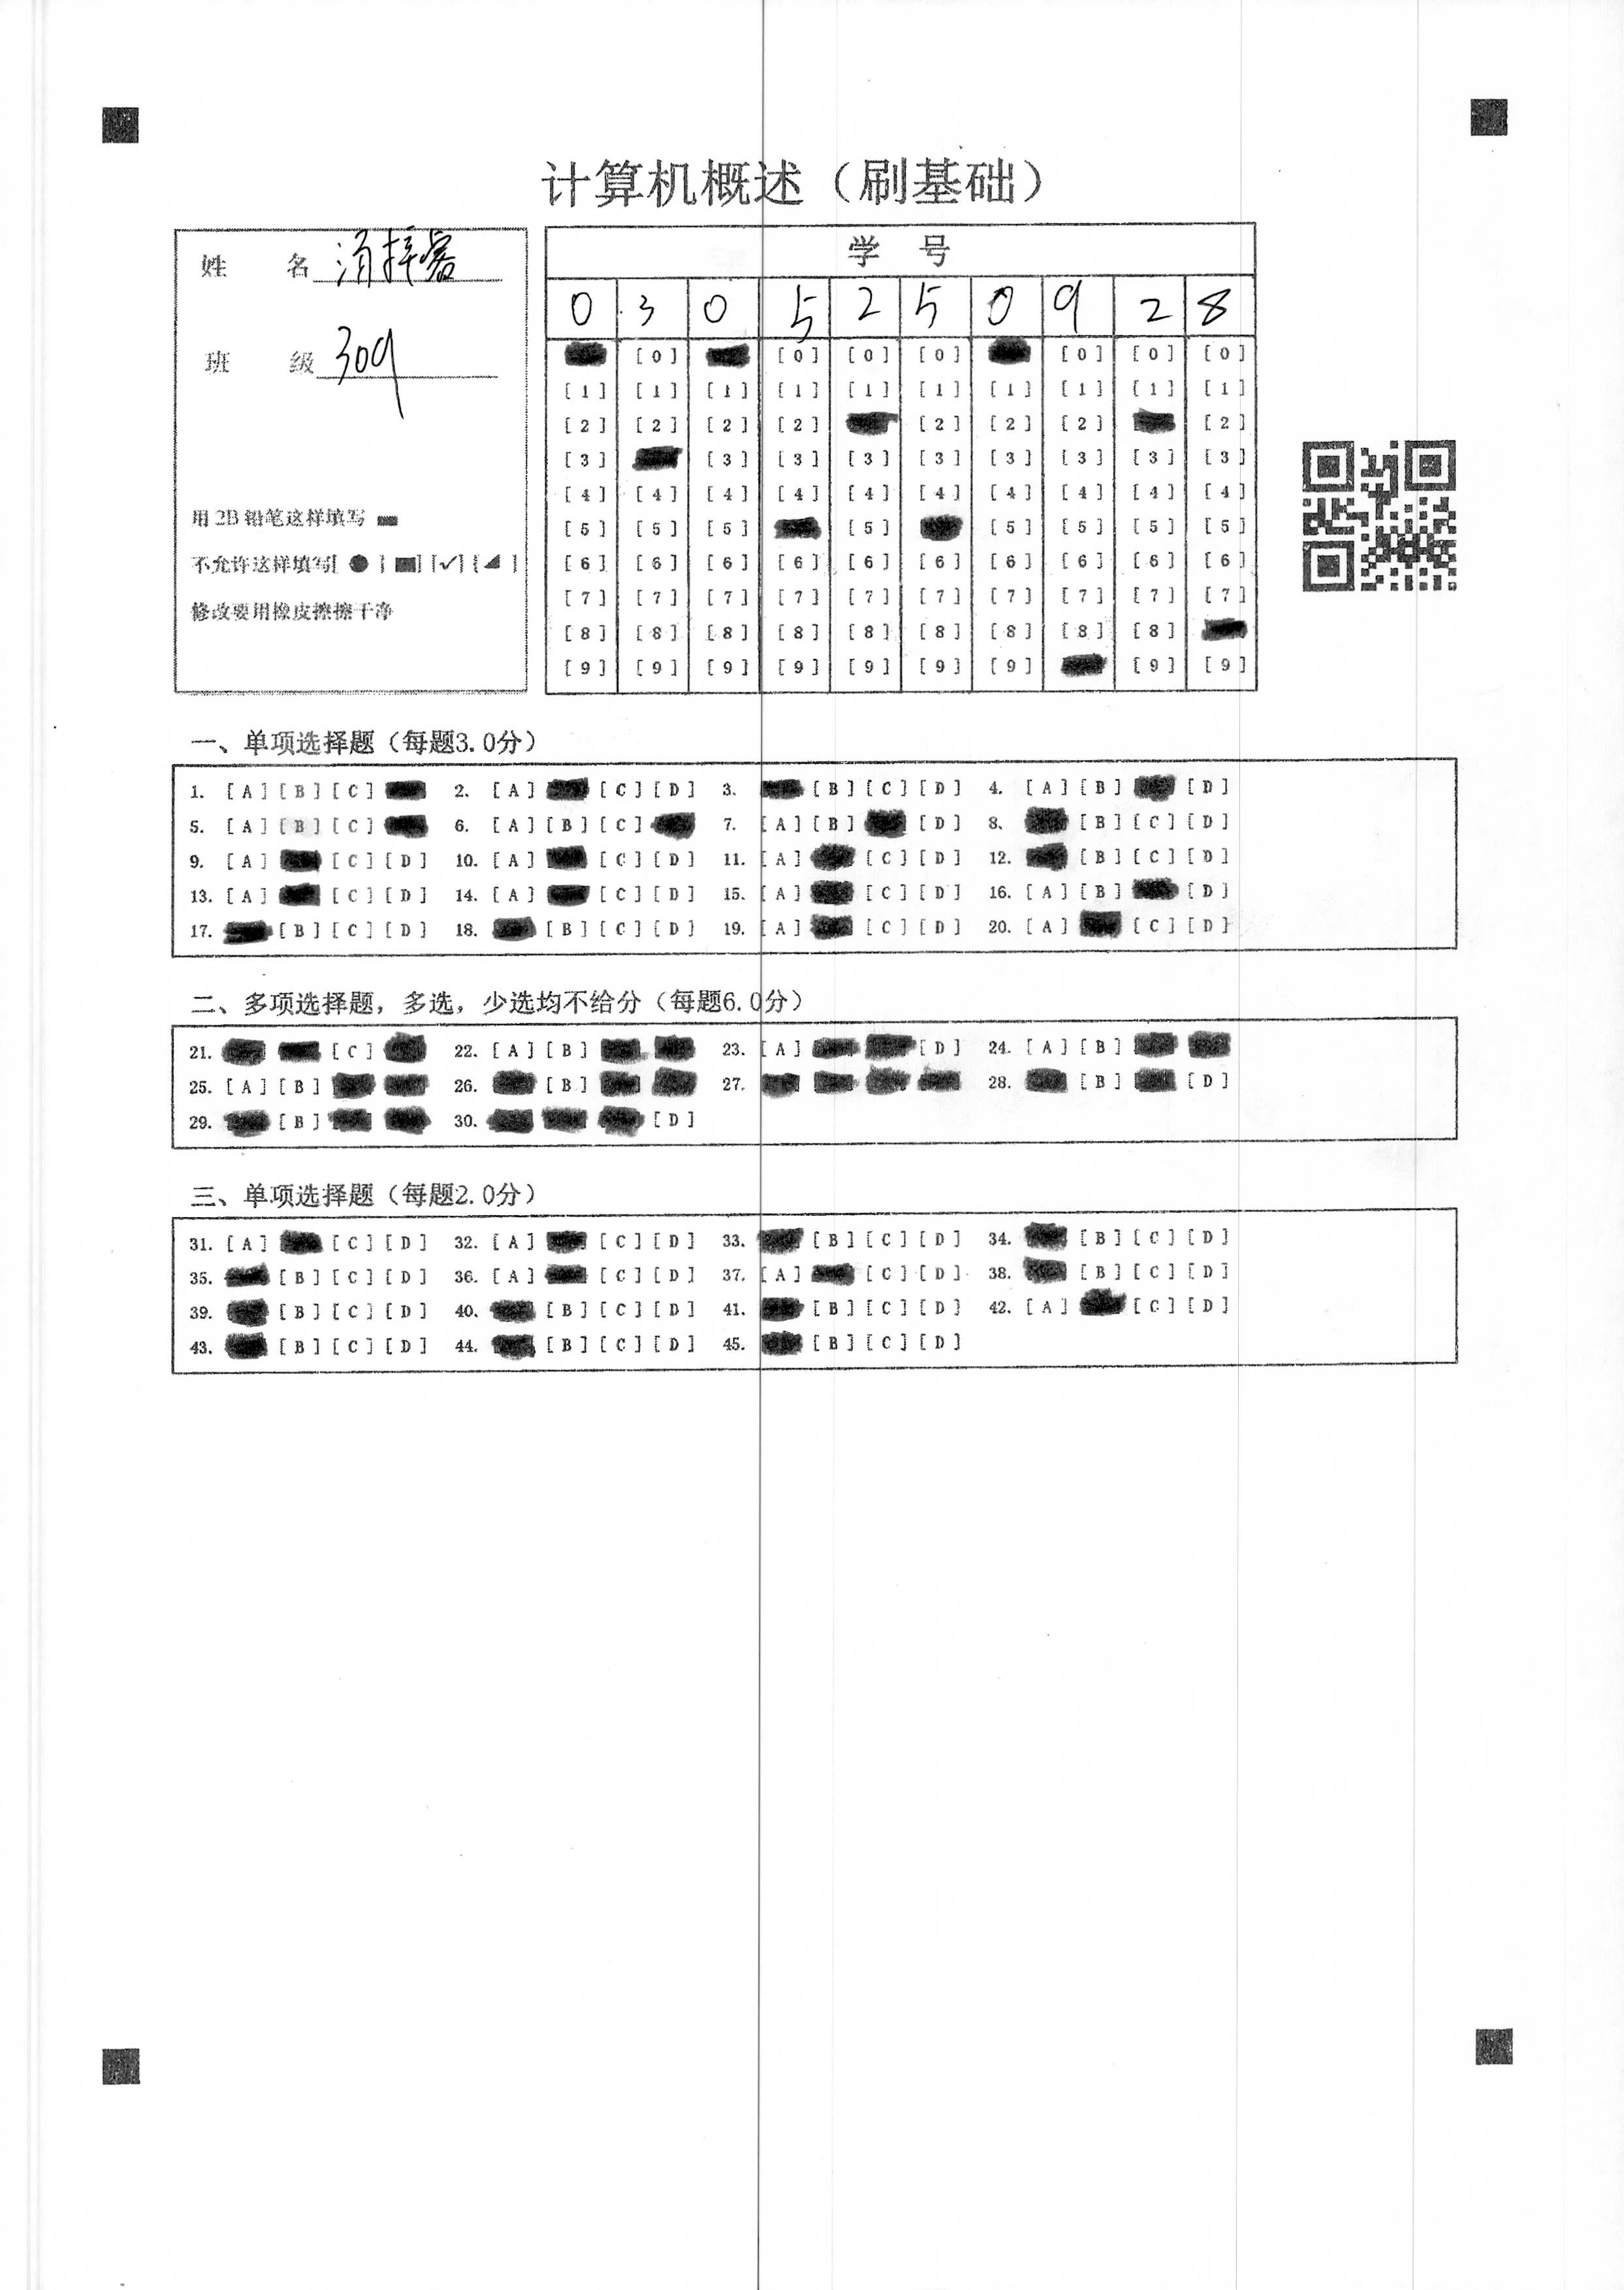 计算机概述（刷基础）
姓 名
班 级 309
用 2B 铅笔这样填写
不允许这样填写[ ● ] [■] [✓] [◢ ]
修改要用橡皮擦擦干净
学 号
0 3 0 5 2 5 0 9 2 8
[0] [0] [0] [0] [0] [0] [0]
[1] [1] [1] [1] [1] [1] [1] [1] [1] [1]
[2] [2] [2] [2] [2] [2] [2] [2]
[3] [3] [3] [3] [3] [3] [3] [3] [3]
[4] [4] [4] [4] [4] [4] [4] [4] [4] [4]
[5] [5] [5] [5] [5] [5] [5] [5]
[6] [6] [6] [6] [6] [6] [6] [6] [6] [6]
[7] [7] [7] [7] [7] [7] [7] [7] [7] [7]
[8] [8] [8] [8] [8] [8] [8] [8] [8]
[9] [9] [9] [9] [9] [9] [9] [9] [9]
一、单项选择题（每题3.0分）
1. [A] [B] [C] 2. [A] [C] [D] 3. [B] [C] [D] 4. [A] [B] [D]
5. [A] [B] [C] 6. [A] [B] [C] 7. [A] [B] [D] 8. [B] [C] [D]
9. [A] [C] [D] 10. [A] [C] [D] 11. [A] [C] [D] 12. [B] [C] [D]
13. [A] [C] [D] 14. [A] [C] [D] 15. [A] [C] [D] 16. [A] [B] [D]
17. [B] [C] [D] 18. [B] [C] [D] 19. [A] [C] [D] 20. [A] [C] [D]
二、多项选择题，多选，少选均不给分（每题6.0分）
21. [C] 22. [A] [B] 23. [A] [D] 24. [A] [B]
25. [A] [B] 26. [B] 27. 28. [B] [D]
29. [B] 30. [D]
三、单项选择题（每题2.0分）
31. [A] [C] [D] 32. [A] [C] [D] 33. [B] [C] [D] 34. [B] [C] [D]
35. [B] [C] [D] 36. [A] [C] [D] 37. [A] [C] [D] 38. [B] [C] [D]
39. [B] [C] [D] 40. [B] [C] [D] 41. [B] [C] [D] 42. [A] [C] [D]
43. [B] [C] [D] 44. [B] [C] [D] 45. [B] [C] [D]